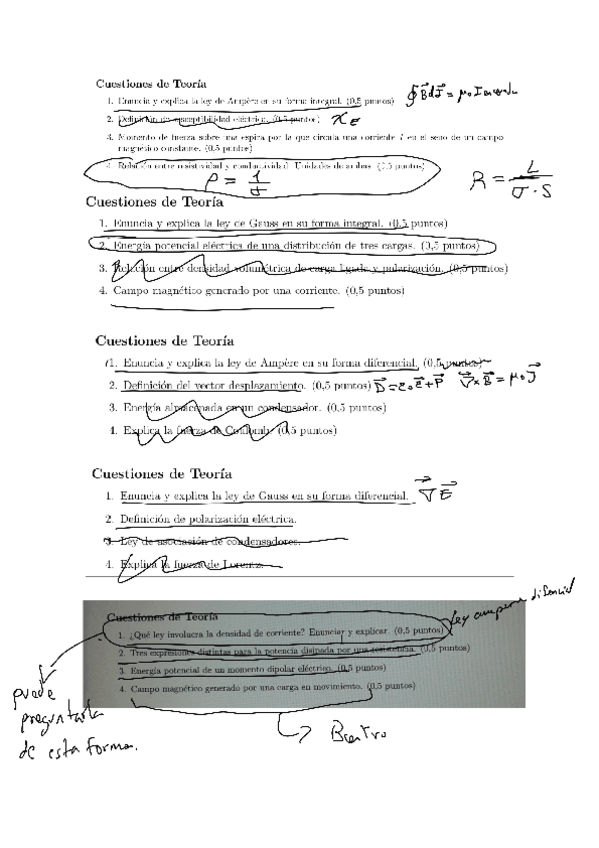 Cuestiones de Teoría
1. Enuncia y explica la ley de Ampère en su forma integral. (0,5 puntos) ∮B⃗dl⃗ = μ₀I
2. Definición de susceptibilidad eléctrica. (0,5 puntos) χE
3. Momento de fuerza sobre una espira por la que circula una corriente I en el seno de un campo
magnético constante. (0,5 puntos)
4. Relación entre resistividad y conductividad. Unidades de ambas. (0,5 puntos)
ρ = 1/σ
R = L/σ·S
Cuestiones de Teoría
1. Enuncia y explica la ley de Gauss en su forma integral. (0,5 puntos)
2. Energía potencial eléctrica de una distribución de tres cargas. (0,5 puntos)
3. Relación entre densidad volumétrica de carga ligada y polarización. (0,5 puntos)
4. Campo magnético generado por una corriente. (0,5 puntos)
Cuestiones de Teoría
1. Enuncia y explica la ley de Ampère en su forma diferencial. (0,5 puntos)
2. Definición del vector desplazamiento. (0,5 puntos) D⃗=ε₀E⃗+P⃗ ∇⃗×B⃗ = μ₀J⃗
3. Energía almacenada en un condensador. (0,5 puntos)
4. Explica la fuerza de Coulomb. (0,5 puntos)
Cuestiones de Teoría
1. Enuncia y explica la ley de Gauss en su forma diferencial. ∇⃗E⃗
2. Definición de polarización eléctrica.
3. Ley de asociación de condensadores.
4. Explica la fuerza de Lorentz.
Cuestiones de Teoría
1. ¿Qué ley involucra la densidad de corriente? Enunciar y explicar. (0,5 puntos) Ley ampere diferencial
2. Tres expresiones distintas para la potencia disipada por una resistencia. (0,5 puntos)
3. Energía potencial de un momento dipolar eléctrico. (0,5 puntos)
4. Campo magnético generado por una carga en movimiento. (0,5 puntos)
puede
preguntarla
de esta forma.